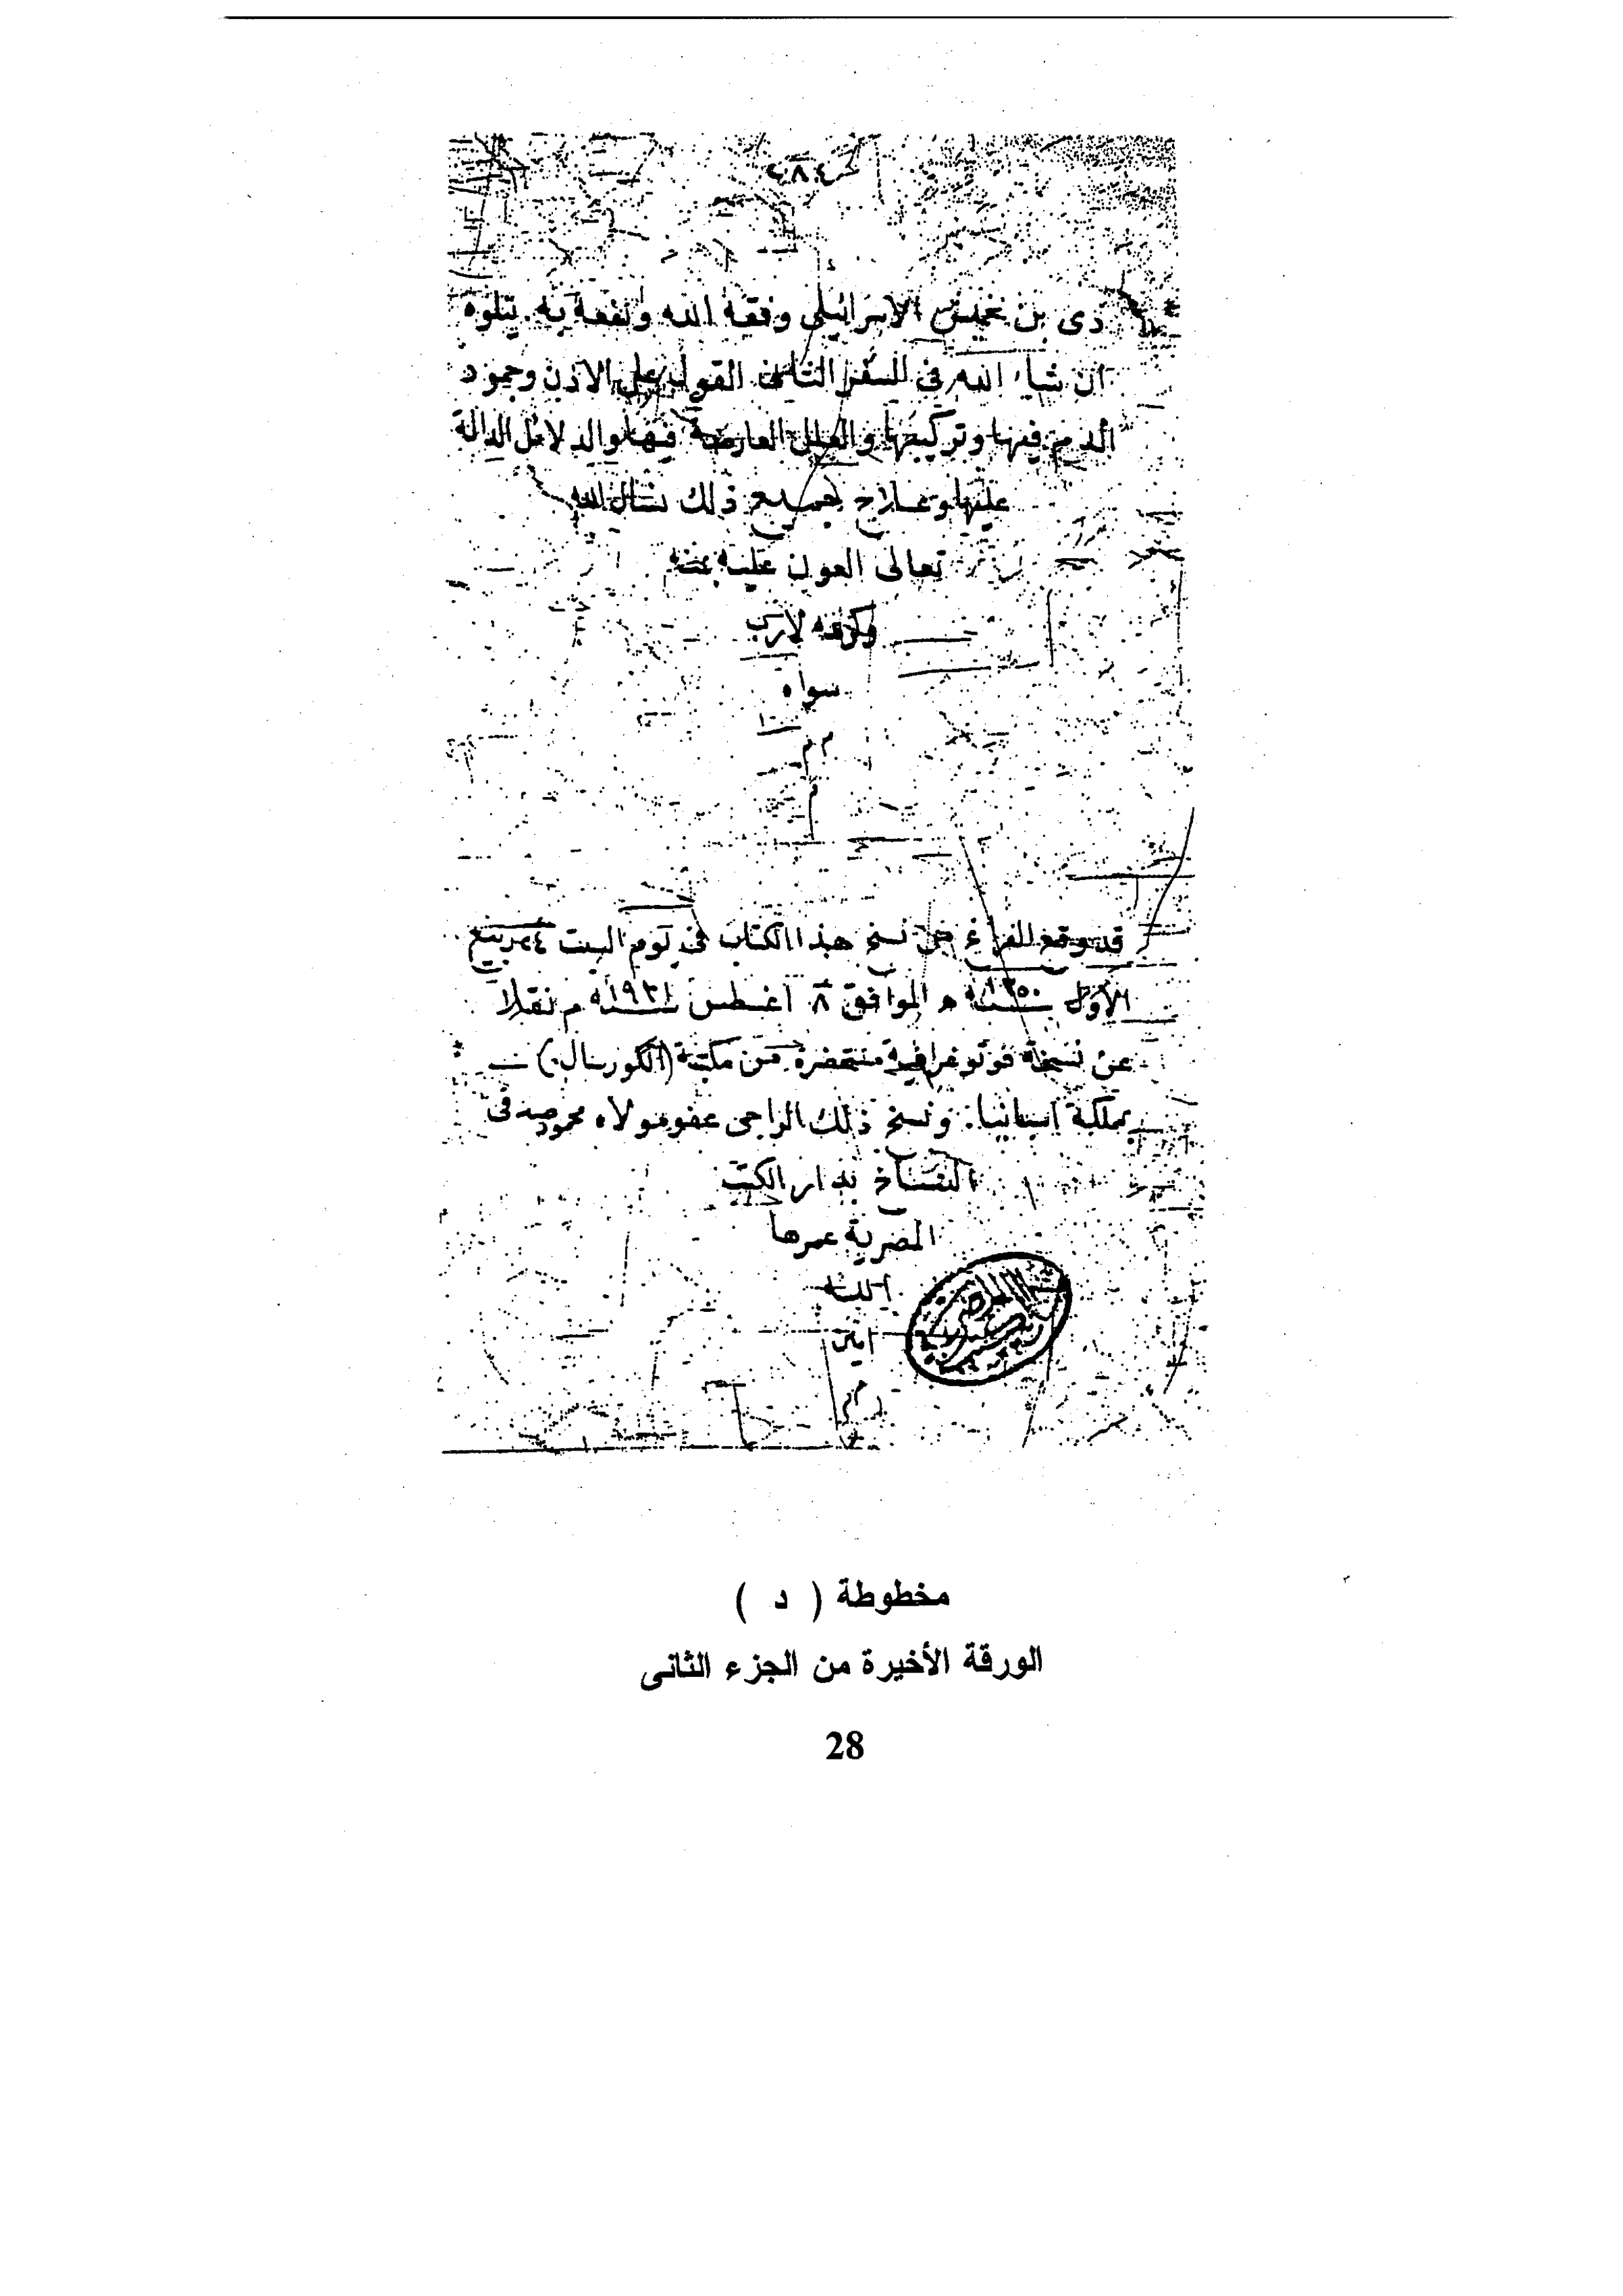 دى بن نحميس الاسرائيلى وفقه الله ونفعه به. يتلوه
ان شاء الله فى السفر الثانى القول على الاذن وجمود
الدم فيها وتركيبها والعلل العارضة فيها والدلائل الدالة
عليها وعلاج جميع ذلك نسال الله
تعالى العون عليه بمنه
وكرمه لارب
سواه
م م
م
قد وقع الفراغ من نسخ هذا الكتاب فى يوم السبت ٢٤ ربيع
الأول سنة ١٣٥٠ ه الموافق ٨ أغسطس سنة ١٩٣١ م نقلا
عن نسخة فوتوغرافية مستحضرة من مكتبة (الكوريال)
بمملكة اسبانيا. ونسخ ذلك الراجى عفو مولاه محمود صدقى
النساخ بدار الكتب
المصرية عمرها
الله
امين
م م
مخطوطة ( د )
الورقة الأخيرة من الجزء الثانى
28